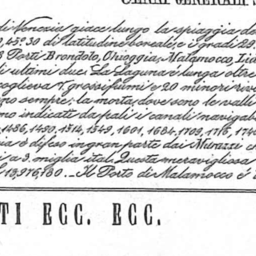 CENNI GENERALI S
di Venezia giace lungo la spiaggia de
0,45° 30 di latitudine boreale e i gradi 29
Porti Brondolo, Chioggia, Malamocco, Lid
li ultimi due. La Laguna è lunga oltre
coglieva 7. grossi fiumi e 20 minori rivi
no sempre; la morta, dove sono le valli
no indicati da pali i canali navigab
1436, 1490, 1514, 1549, 1601, 1684, 1709, 1716, 174
ia è difeso in gran parte dai Murazzi c
i a 3. miglia ital. Questa meravigliosa
13,976,780 _ Il Porto di Malamocco é i
TI ECC. ECC.